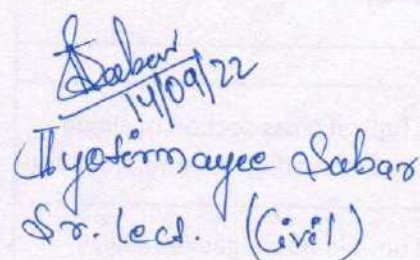 Sabar
14/09/22
Jyotirmayee Sabar
Sr. lect. (Civil)